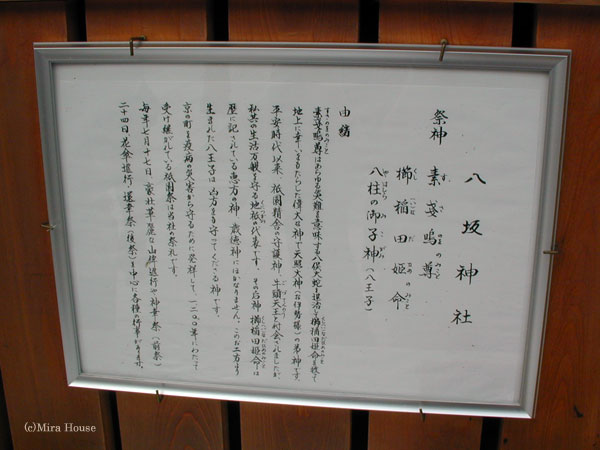 八坂神社
祭神 素盞嗚尊
櫛稲田姫命
八柱の御子神(八王子)
由緒
素盞嗚尊はあらゆる災難を意味する八俣大蛇を退治し櫛稲田姫命を救って
地上に幸いをもたらした偉大な神で天照大神(お伊勢様)の弟神です。
平安時代以来、祇園精舎の守護神、牛頭天王と付会されましたが、
私共の生活万般を守る地祇の代表です。その后神 櫛稲田姫命は
暦に記されている恵方の神 歳徳神にほかなりません。このお二方より
生まれた八王子は凶方を守ってくださる神です。
京の町を疫病の災害から守るために発祥して一二〇〇年にわたって
受け継がれている祇園祭は当社の祭礼です。
毎年七月十七日、豪壮華麗な山鉾巡行や神幸祭(前祭)
二十四日花傘巡行・還幸祭(後祭)を中心に各種の行事があります。
(c)Mira House